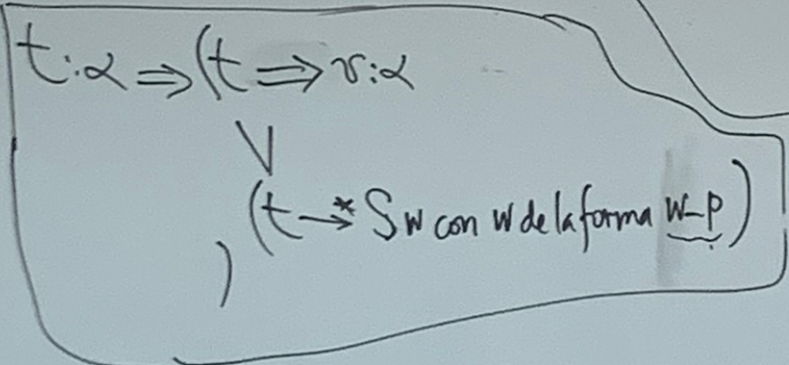 t:α ⇒ (t ⇒ v:α
∨
(t →* S w con w de la forma w_p)
)